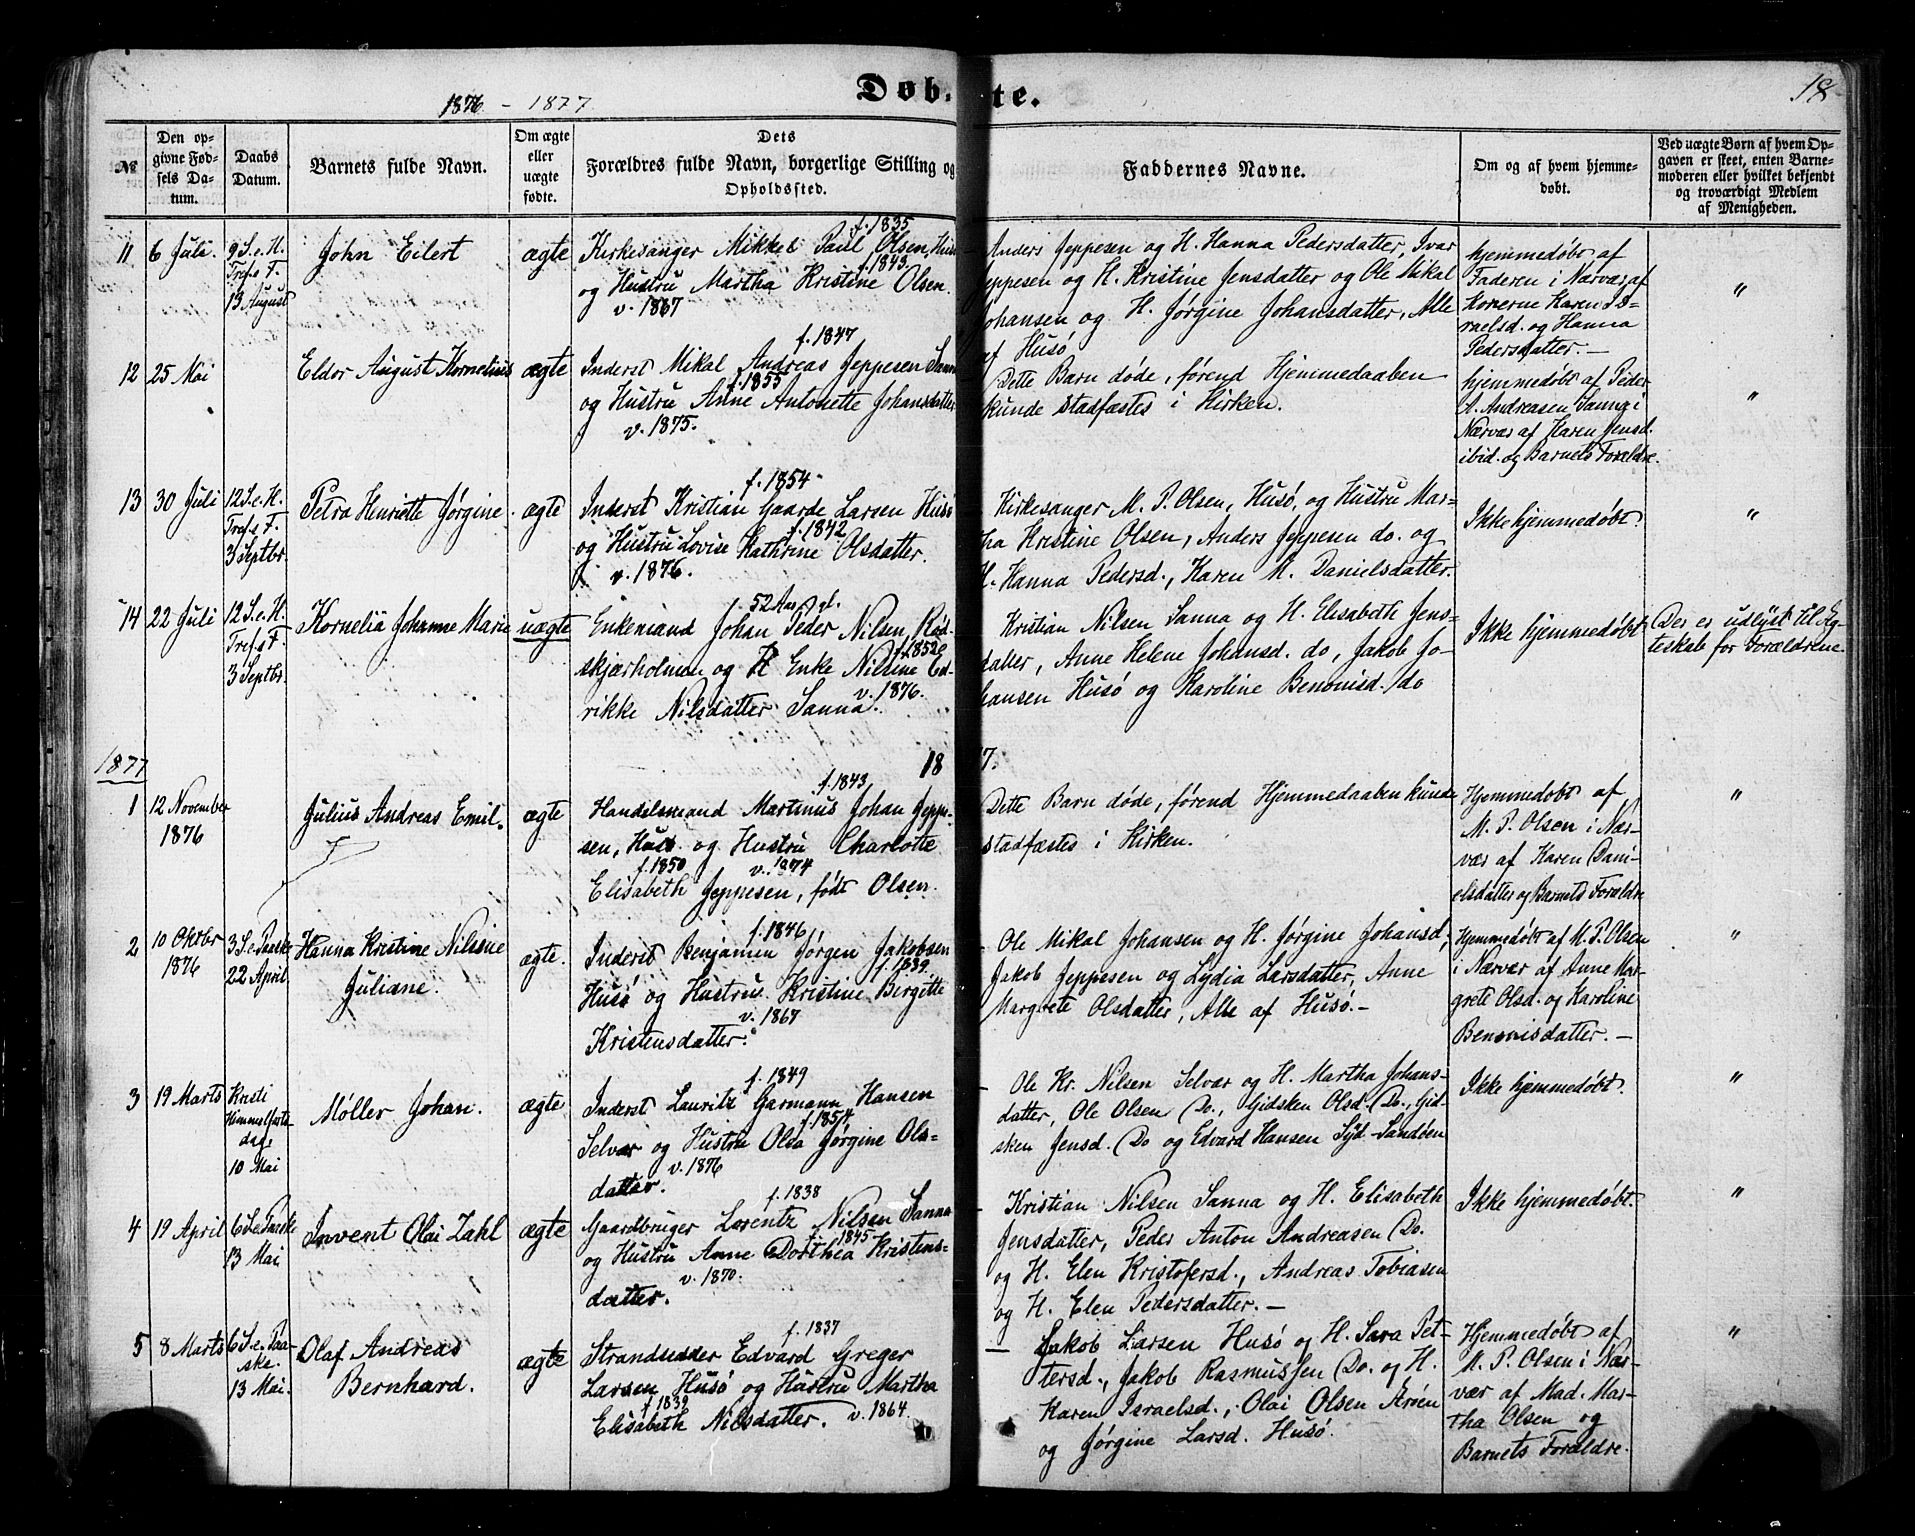 1876 - 1877
Døb-
te.
18
№
Den op-
givne Fød-
sels Da-
tum.
Daabs
Datum.
Barnets fulde Navn.
Om ægte
eller
uægte
fødte.
Dets
Forældres fulde Navn, borgerlige Stilling og
Opholdssted.
Faddernes Navne.
Om og af hvem hjemme-
døbt.
Ved uægte Børn af hvem Op-
gaven er skeet, enten Barne-
moderen eller hvilket bekjendt
og troværdigt Medlem
af Menigheden.
11
6 Juli.
9 S. e. H.
Tref.s F.
13 August
John Eilert
ægte
f. 1835
Kirkesanger Mikkel Paul Olsen, Husø
f. 1843.
og Hustru Martha Kristine Olsen.
v. 1867
Anders Jeppesen og H. Hanna Pedersdatter, Ivar
Jeppesen og H. Kristine Jensdatter og Ole Mikal
Johansen og H. Jørgine Johansdatter, Alle
af Husø
hjemmedøbt af
Faderen i Nærvær af
konerne Karen Is-
raelsd. og Hanna
Pedersdatter. —
"
12
25 Mai
Eldor August Kornelius
ægte
f. 1847
Inderst Mikal Andreas Jeppesen Sanna
f. 1855
og Hustru Anne Antonette Johansdatter
v. 1875.
Dette Barn døde, førend Hjemmedaaben
kunde stadfæstes i Kirken.
hjemmedøbt af Peder
A. Andreasen Sanna i
Nærvær af Karen Jensd.
ibid. og Barnets Forældre.
"
13
30 Juli
12 S. e. H.
Tref.s F.
3 Septbr.
Petra Henriette Jørgine.
ægte
f. 1854
Inderst Kristian Gaarde Larsen Husø
f. 1842
og Hustru Lovise Kathrine Olsdatter.
v. 1876.
Kirkesanger M. P. Olsen, Husø, og Hustru Mar-
tha Kristine Olsen, Anders Jeppesen do. og
H. Hanna Pedersd., Karen M. Danielsdatter.
Ikke hjemmedøbt
"
14
22 Juli
12 S. e. H.
Tref.s F.
3 Septbr.
Kornelia Johanne Marie
uægte
f. 52 Aar gl.
Enkemand Johan Peder Nilsen, Rød-
f. 1852
skjærholmen og Enke Nilsine Ed-
v. 1876.
rikke Nilsdatter Sanna.
Kristian Nilsen Sanna og H. Elisabeth Jens-
datter, Anne Helene Johansd. do, Jakob Jo-
hansen Husø og Karoline Benonisd. do
Ikke hjemmedøbt
Der er udlyst til Æg-
teskab for Forældrene.
1877
18
7.
1
12 November
1876
Julius Andreas Emil.
ægte
f. 1843
Handelsmand Martinus Johan Jeppe-
sen, Husø og Hustru Charlotte
f. 1850 v. 1874
Elisabeth Jeppesen, født Olsen.
Dette Barn døde, førend Hjemmedaaben kunde
stadfæstes i Kirken.
Hjemmedøbt af
M. P. Olsen i Nær-
vær af Karen Dani-
elsdatter og Barnets Forældre
"
2
10 Oktbr
1876
3 S. e. Paaske
22 April
Hanna Kristine Nilsine
Juliane.
ægte.
f. 1846
Inderst Benjamin Jørgen Jakobsen
f. 1839.
Husø og Hustru Kristine Birgitte
v. 1867
Kristensdatter.
Ole Mikal Johansen og H. Jørgine Johansd.,
Jakob Jeppesen og Lydia Larsdatter, Anne
Margrete Olsdatter, Alle af Husø. —
Hjemmedøbt af M. P. Olsen
i Nærvær af Anne Mar-
grete Olsd. og Karoline
Benonisdatter. —
"
3
19 Marts
Kristi
Himmelfarts
dag
10 Mai
Møller Johan.
ægte
f. 1849
Inderst Lauritz Garmann Hansen
f. 1854
Selvær og Hustru Olea Jørgine Ols-
v. 1876
datter.
Ole Kr. Nilsen Selvær og H. Martha Johans-
datter, Ole Olsen Do., Gidsken Olsd. Do., Gid-
sken Jensd. Do og Edvard Hansen Syd-Sandøen
Ikke hjemmedøbt.
"
4
19 April
6 S. e. Paaske
13 Mai
Invent Olai Zahl
ægte
f. 1838
Gaardbruger Lorentz Nilsen Sanna
f. 1845
og Hustru Anne Dorthea Kristens-
v. 1870.
datter.
Kristian Nilsen Sanna og H. Elisabeth
Jensdatter, Peder Anton Andreasen Do.
og H. Elen Kristofersd., Andreas Tobiasen
og H. Elen Pedersdatter. —
Ikke hjemmedøbt.
"
5
8 Marts
6 S. e. Paa-
ske.
13 Mai.
Olaf Andreas
Bernhard.
ægte
f. 1837
Strandsidder Edvard Greger
Larsen Husø og Hustru Martha
f. 1839
Elisabeth Nilsdatter. v. 1864.
Jakob Larsen Husø og H. Sara Pet-
tersd., Jakob Rasmussen Do. og H.
Karen Israelsd., Olai Olsen
og Jørgine Larsd. Husø.
Hjemmedøbt af
M. P. Olsen i Nær-
vær af Mad. Mar-
tha Olsen og
Barnets Forældre.
"